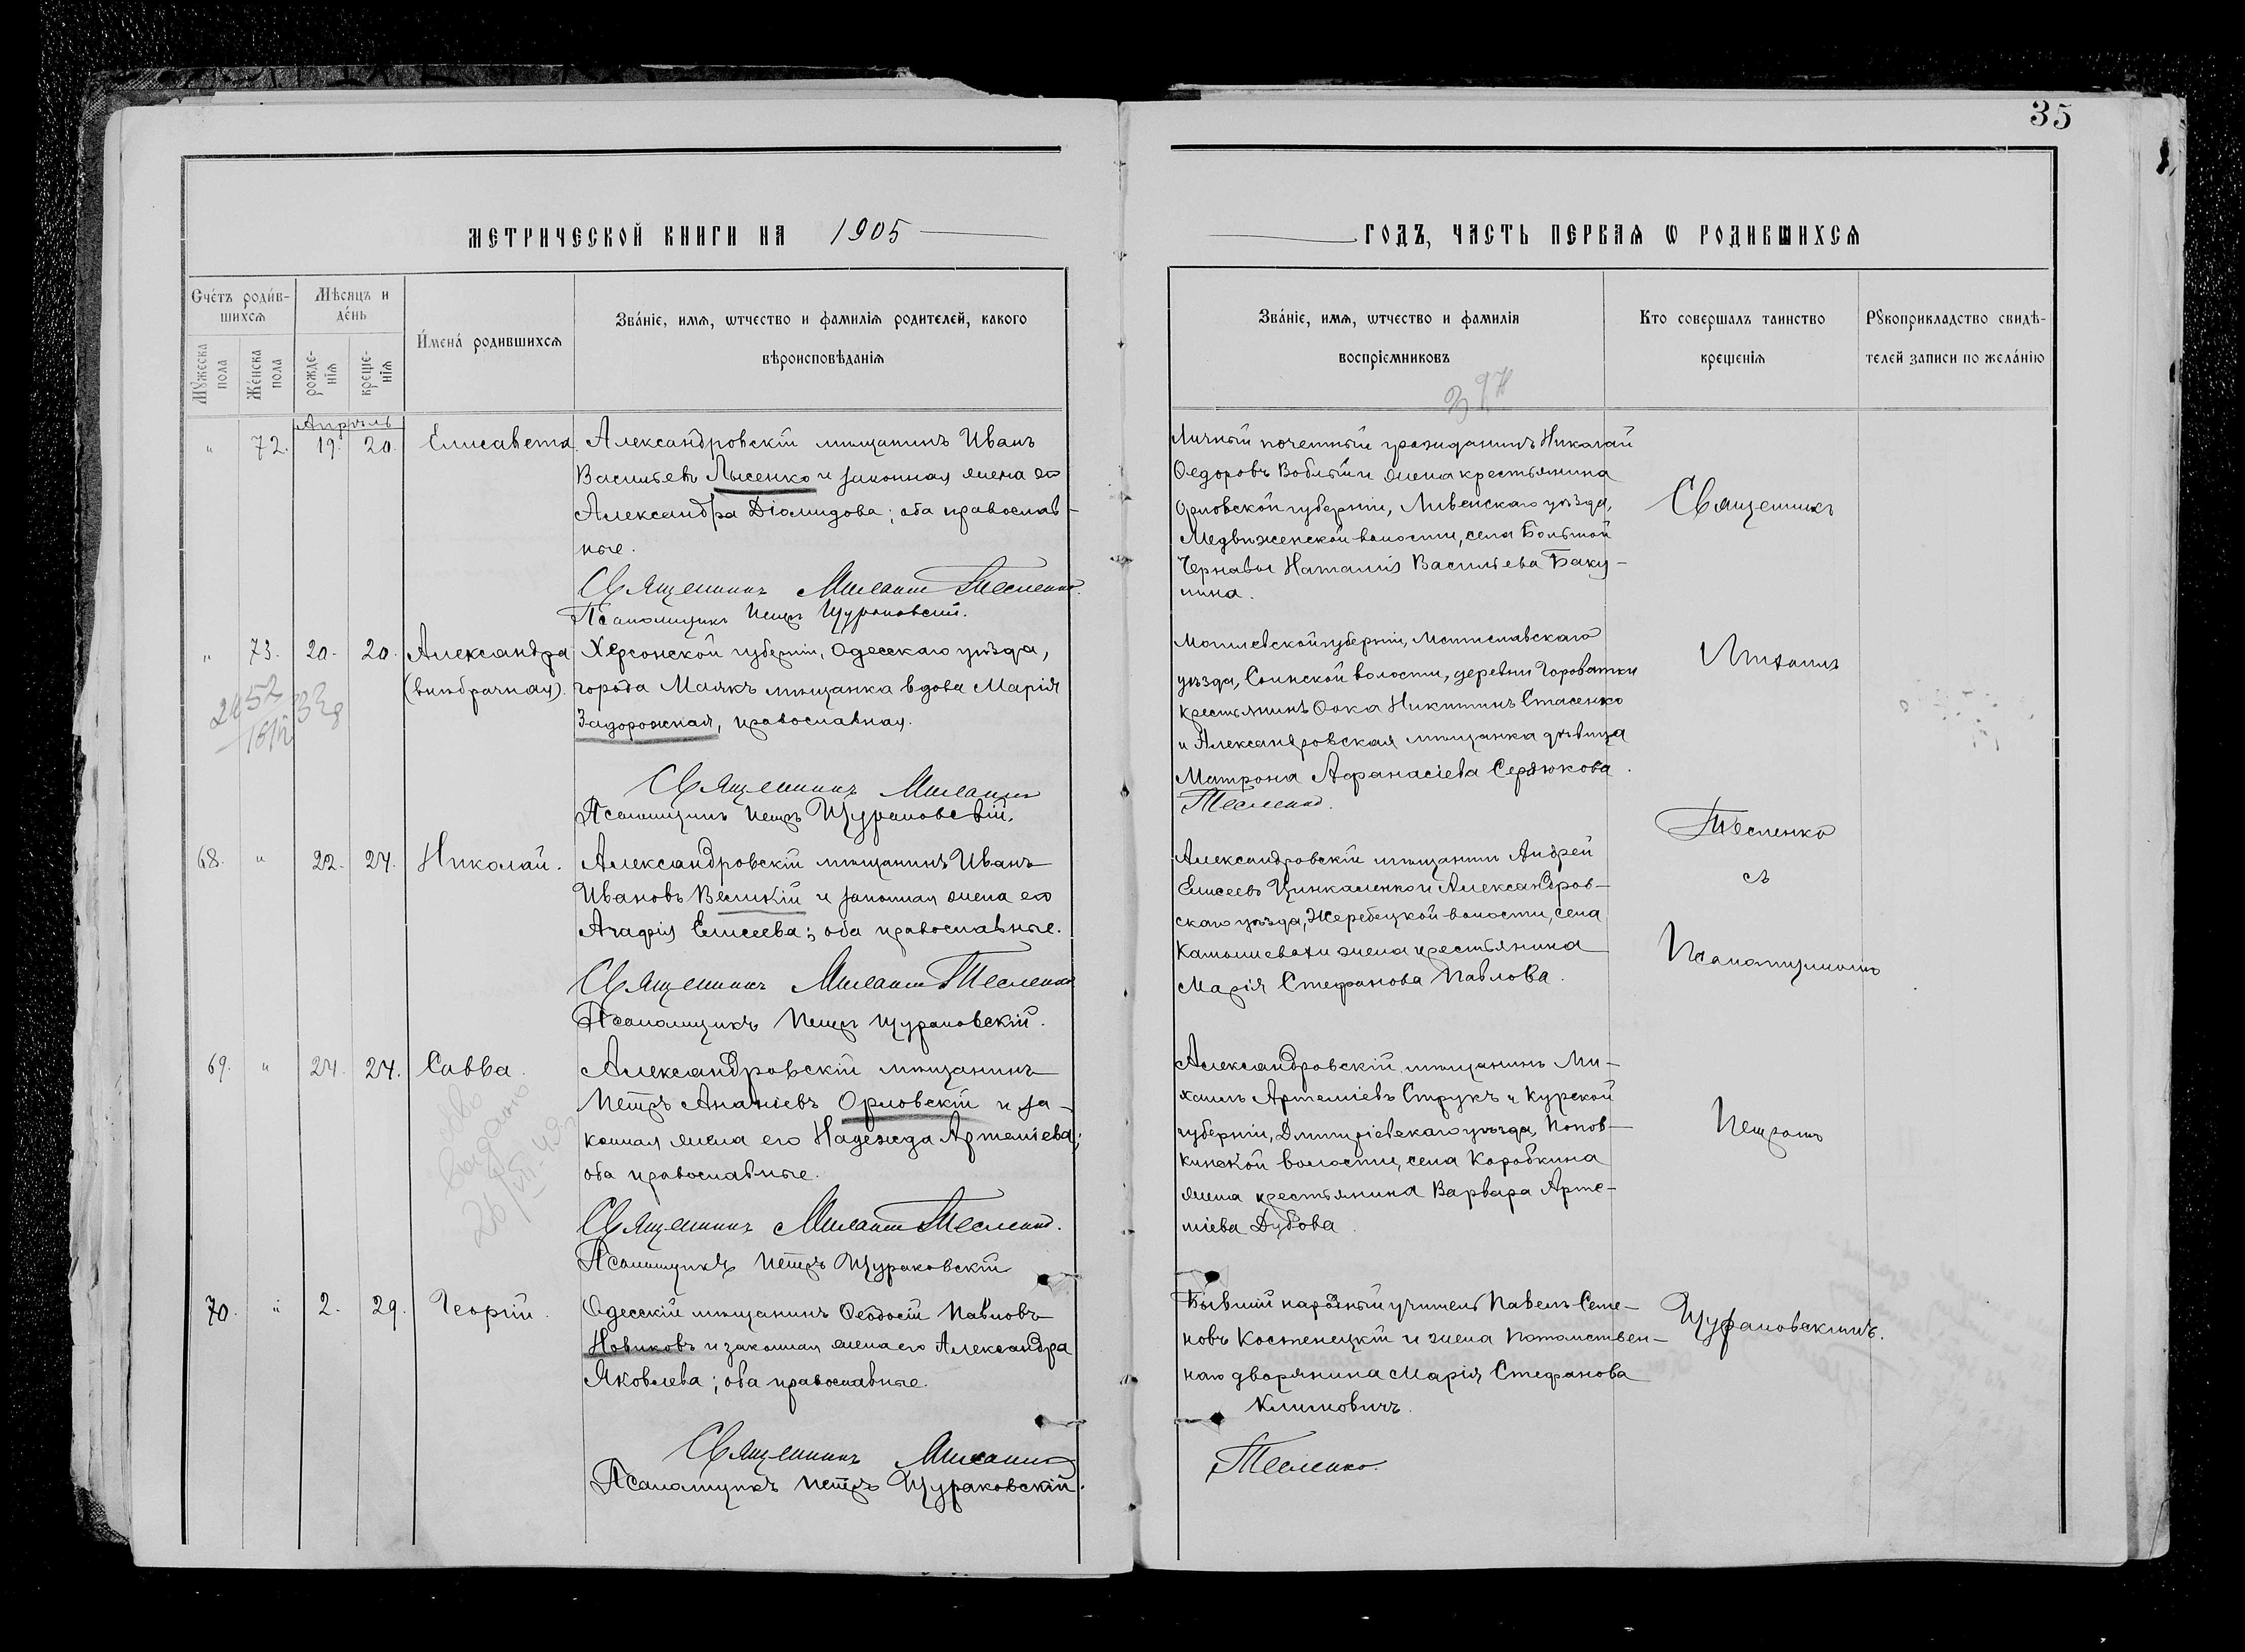 35
МЕТРИЧЕСКОЙ КНИГИ НА 1905
ГОДЪ, ЧАСТЬ ПЕРВАЯ Ѡ РОДИВШИХСѦ
Счетъ родив-
шихсѧ
Мѣсяцъ и
день
Мꙋжеска пола
Женска пола
рожде-
нїѧ
креще-
нїѧ
Имена родившихсѧ
Званїе, имѧ, ѡтчество и фамилїѧ родителей, какого
вѣроисповѣданїѧ
Званїе, имѧ, ѡтчество и фамилїѧ
воспрїемниковъ
Кто совершалъ таинство
крещенїѧ
Рꙋкоприкладство свидѣ-
телей записи по желанїю
Апрѣль
" 72. 19. 20. Елисавета.
Александровскій мѣщанинъ Иванъ
Васильевъ Лысенко и законная жена его
Александра Діомидова; оба православ-
ные.
Священникъ Михаилъ Тесленко.
Псаломщикъ Петръ Щураковскій.
Личный почетный гражданинъ Николай
Ѳедоровъ Воблый и жена крестьянина
Орловской губерніи, Ливенскаго уѣзда,
Медвѣженской волости, села Большой
Чернавы Наталія Васильева Баку-
лина.
" 73. 20. 20. Александра
(внѣбрачная).
Херсонской губерніи, Одесскаго уѣзда,
города Маякъ мѣщанка вдова Марія
Задорожная, православная.
Священникъ Михаилъ
Тесленко.
Псаломщикъ Петръ Щураковскій.
Могилевской губерніи, Мстиславскаго
уѣзда, Соинской волости, деревни Гороватки
крестьянинъ Ѳока Никитинъ Стасенко
и Александровская мѣщанка дѣвица
Матрона Аѳанасіева Сердюкова.
68. " 22. 24. Николай.
Александровскій мѣщанинъ Иванъ
Ивановъ Великій и законная жена его
Агафія Елисеева; оба православные.
Священникъ Михаилъ Тесленко
Псаломщикъ Петръ Щураковскій.
Александровскій мѣщанинъ Андрей
Елисеевъ Цинкаленко и Александров-
скаго уѣзда, Жеребецкой волости, села
Камышевахи жена крестьянина
Марія Стефанова Павлова.
69. " 24. 24. Савва.
выдано
26/VII-49
Александровскій мѣщанинъ
Петръ Ананіевъ Орловскій и за-
конная жена его Надежда Артеміева;
оба православные.
Священникъ Михаилъ Тесленко.
Псаломщикъ Петръ Щураковскій
Александровскій мѣщанинъ Ми-
хаилъ Артеміевъ Струкъ и Курской
губерніи, Дмитріевскаго уѣзда, Попов-
кинской волости, села Коробкина
жена крестьянина Варвара Арте-
міева Дубова.
70. " 2. 29. Георгій.
Одесскій мѣщанинъ Ѳеодосій Павловъ
Новиковъ и законная жена его Александра
Яковлева; оба православные.
Священникъ Михаилъ
Тесленко.
Псаломщикъ Петръ Щураковскій.
Бывшій народный учитель Павелъ Семе-
новъ Костенецкій и жена потомствен-
наго дворянина Марія Стефанова
Климовичъ.
Священникъ
Михаилъ
Тесленко
съ
Псаломщикомъ
Петромъ
Щураковскимъ.